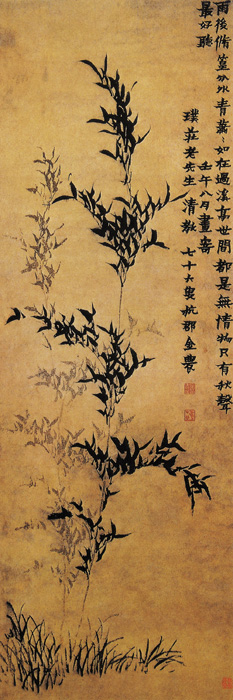 雨後脩篁分外青蕭蕭如在過溪亭世間都是無情物只有秋聲
最好聽
壬午八月畫寄
璞莊老先生清教七十六叟杭郡金農